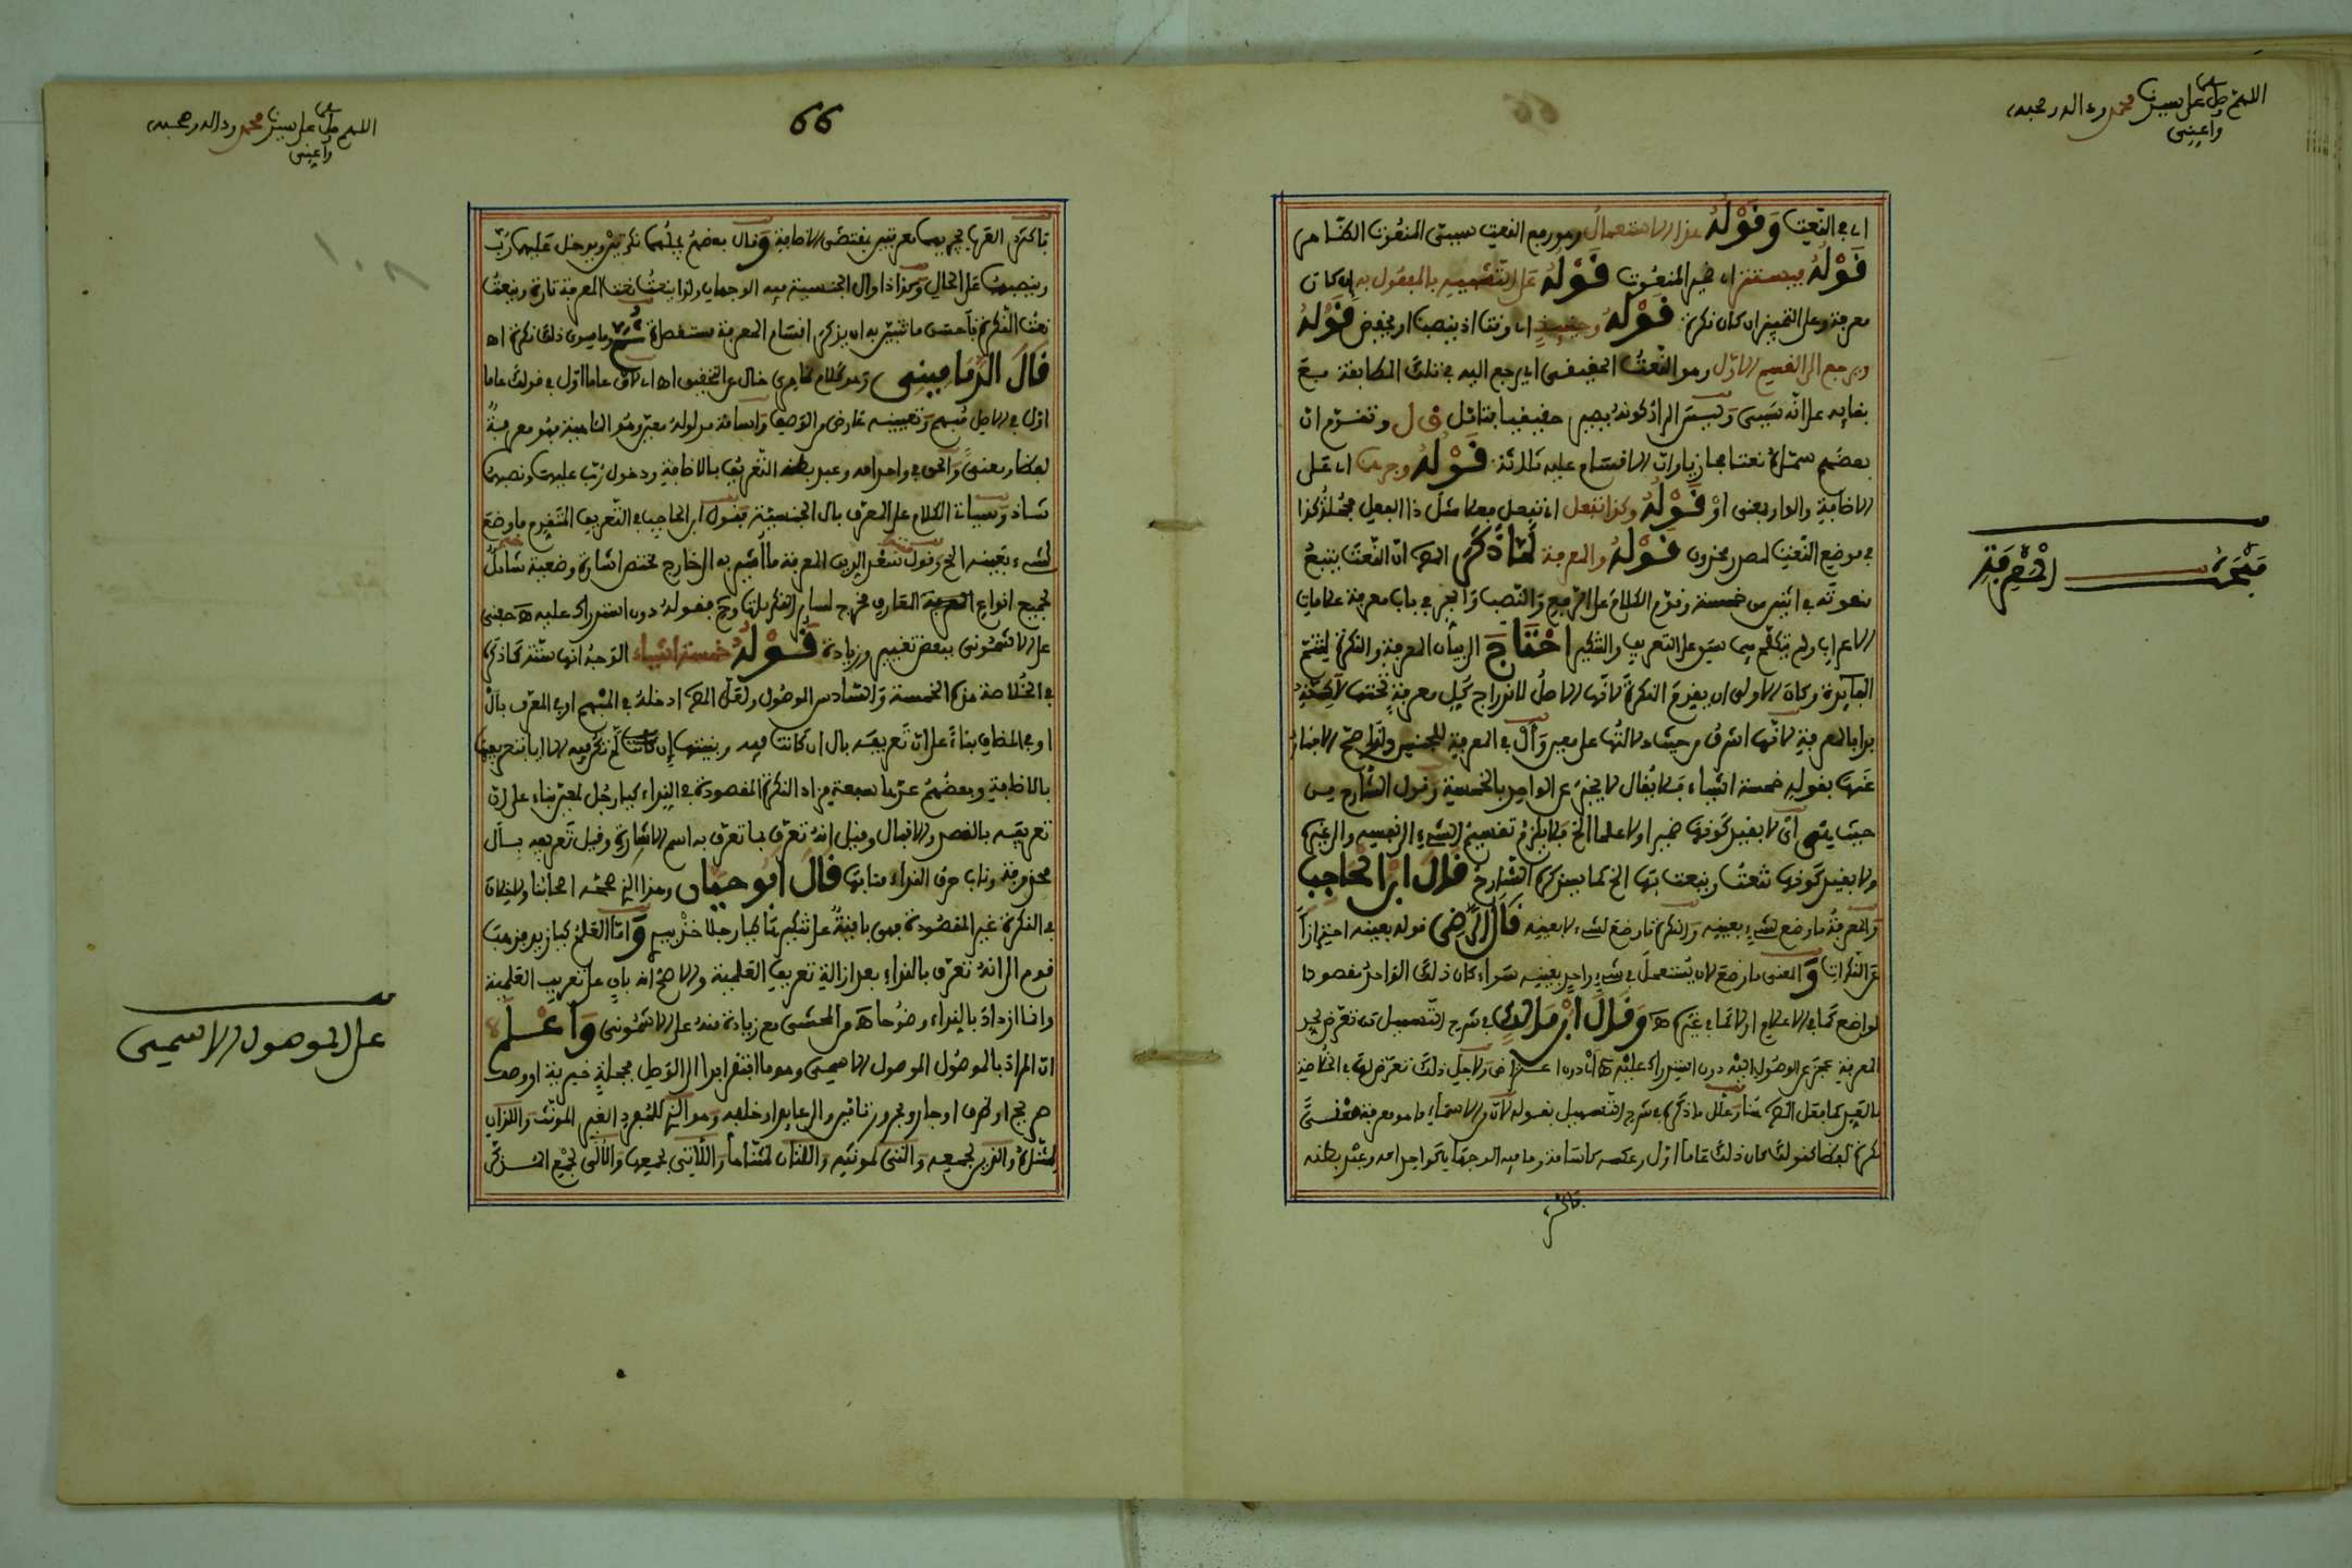 اللهم صل على سيدنا محمد وءاله وصحبه
واعني
اي في النعت وقوله هذا الاستعمال وهو رفع النعت سببي المنعوت الظاهر
قوله فيستتر اي ضمير المنعوت قوله على التشبيه بالمفعول به ان كان
معرفة وعلى التمييز ان كان نكرة قوله وحينئذ اي وقت اذ ينصب او يخفض قوله
ويرجع الى القسم الاول وهو النعت الحقيقي اي يرجع اليه في تلك المطابقة مع
بقايه على انه سببي وليس المراد كونه يصير حقيقيا فتامل وتقدم ان
بعضهم سماه نعتا مجازيا وان الاقسام عليه ثلاثة قوله وجرهما اي على
الاضافة والواو بمعنى او قوله وكذا تفعل اي تفعل فعلا مثل ذا الفعل فكذا
في موضع النعت لمصدر محذوف قوله والمعرفة لما ذكر المص ان النعت يتبع
منعوته في اثنين من خمسة وقدم الكلام على الرفع والنصب والجر في باب معرفة علامات
الاعراب ولم يتكلم فيما سبق على التعريف والتنكير احتاج الى بيان المعرفة والنكرة لتتم
الفايدة وكان الاولى ان يقدم النكرة لانها الاصل لاندراج كل معرفة تحتها لاكنه
بدا بالمعرفة لانها اشرف من حيث دلالتها على معين وال في المعرفة للجنس ولذا صح الاخبار
عنها بقوله خمسة اشياء فلا يقال لا يخبر عن الواحد بالخمسة وقول الشارح من
حيث هي اي لا بقيد كونها ضميرا ولا علما الخ فلا يلزم تقسيم الشيء الى نفسه والى غيره
ولا بقيد كونها تنعت وينعت بها الخ كما سيذكره الشارح قال ابن الحاجب
والمعرفة ما وضع لشيء بعينه والنكرة ما وضع لشيء لا بعينه قال الرضي قوله بعينه احترازا
عن النكرات والمعنى ما وضع لان يستعمل في شيء واحد بعينه سواء كان ذلك الواحد مقصودا
لواضع كما في الاعلام او لا كما في غيرها اه وقال ابن مالك في شرح التسهيل من تعرض لحد
المعرفة عجز عن الوصول اليه دون استدراك عليه اه اي دون اعتراض ولاجل ذلك تعرض لها في الخلاصة
بالعد كما فعل المص هنا وعلل ما ذكره في شرح التسهيل بقوله لان من الاسماء ما هو معرفة معنى
نكرة لفظا كقولك كان ذلك عاما اول وعكسه كاسامة وما فيه الوجهان كواحد امه وعبد بطنه
فاكثر
مبحث المعرفة
66
اللهم صل على سيدنا محمد وءاله وصحبه
واعني
فاكثر العرب يجريهما معرفتين بمقتضى الاضافة وقال بعضهم يجعلهما نكرتين ويدخل عليهما رب
وينصبهما على الحال وكذا ذو ال الجنسية فيه الوجهان ولذا ينعت نعت المعرفة تارة وينعت
نعت النكرة فاحسن ما تبين به ان يذكر اقسام المعرفة مستقصاة ثم يقال وما سوى ذلك نكرة اه
قال الدماميني وهو كلام ظاهري خال عن التحقيق اه اي لان عاما اول في قولك عاما
اول في الاصل مبهم وتعيينه عارض من الوصف واسامة مدلوله معين وهو الماهية فهو معرفة
لفظا ومعنى والحق في واحد امه وعبد بطنه التعريف بالاضافة ودخول رب عليهما ونصبهما
شاذ وسياتي الكلام على المعرف بال الجنسية فقول ابن الحاجب في التعريف المتقدم ما وضع
لشيء بعينه الخ وقول سعد الدين المعرفة ما اشير به الى خارج مختص اشارة وضعية شامل
لجميع انواع المعارف مخرج لسائر النكرات وح فقوله دون استدراك عليه اه حفني
على الاشموني ببعض تغيير وزيادة قوله خمسة اشياء الوجه انها ستة كما ذكره
في الخلاصة هذه الخمسة والسادس الموصول ولعل المص ادخله في المبهم او في المعرف بال
او في المضاف بناء على ان تعريفه بال ان كانت فيه وبنيتها ان لم تكن فيه الا ايا فتعريفها
بالاضافة وبعضهم عدها سبعة فزاد النكرة المقصودة في النداء كيا رجل لمعين بناء على ان
تعريفه بالقصد والاقبال وقيل انه تعرف بما تعرف به اسم الاشارة وقيل تعريفه بال
محذوفة وناب حرف النداء منابها قال ابو حيان وهذا الذي صححه اصحابنا ولا خلاف
في النكرة غير المقصودة فهي باقية على تنكيرها كيا رجلا خذ بيدي واما العلم كيا زيد فذهب
قوم الى انه تعرف بالنداء بعد ازالة تعريف العلمية والاصح انه باق على تعريف العلمية
وانما ازداد بالنداء وضوحا اه من المحشي مع زيادة منه على الاشموني واعلم
ان المراد بالموصول الموصول الاسمي وهو ما افتقر ابدا الى الوصل بجملة خبرية او وصف
صريح او ظرف او جار ومجرور تامين والى عايد او خلفه وهو الذي للمفرد الغير المونث واللذان
لمثناه والذين لجمعه والتي لمونثه واللتان لمثناها واللائي لجمعها والالى لجمع المذكر
على الموصول الاسمي